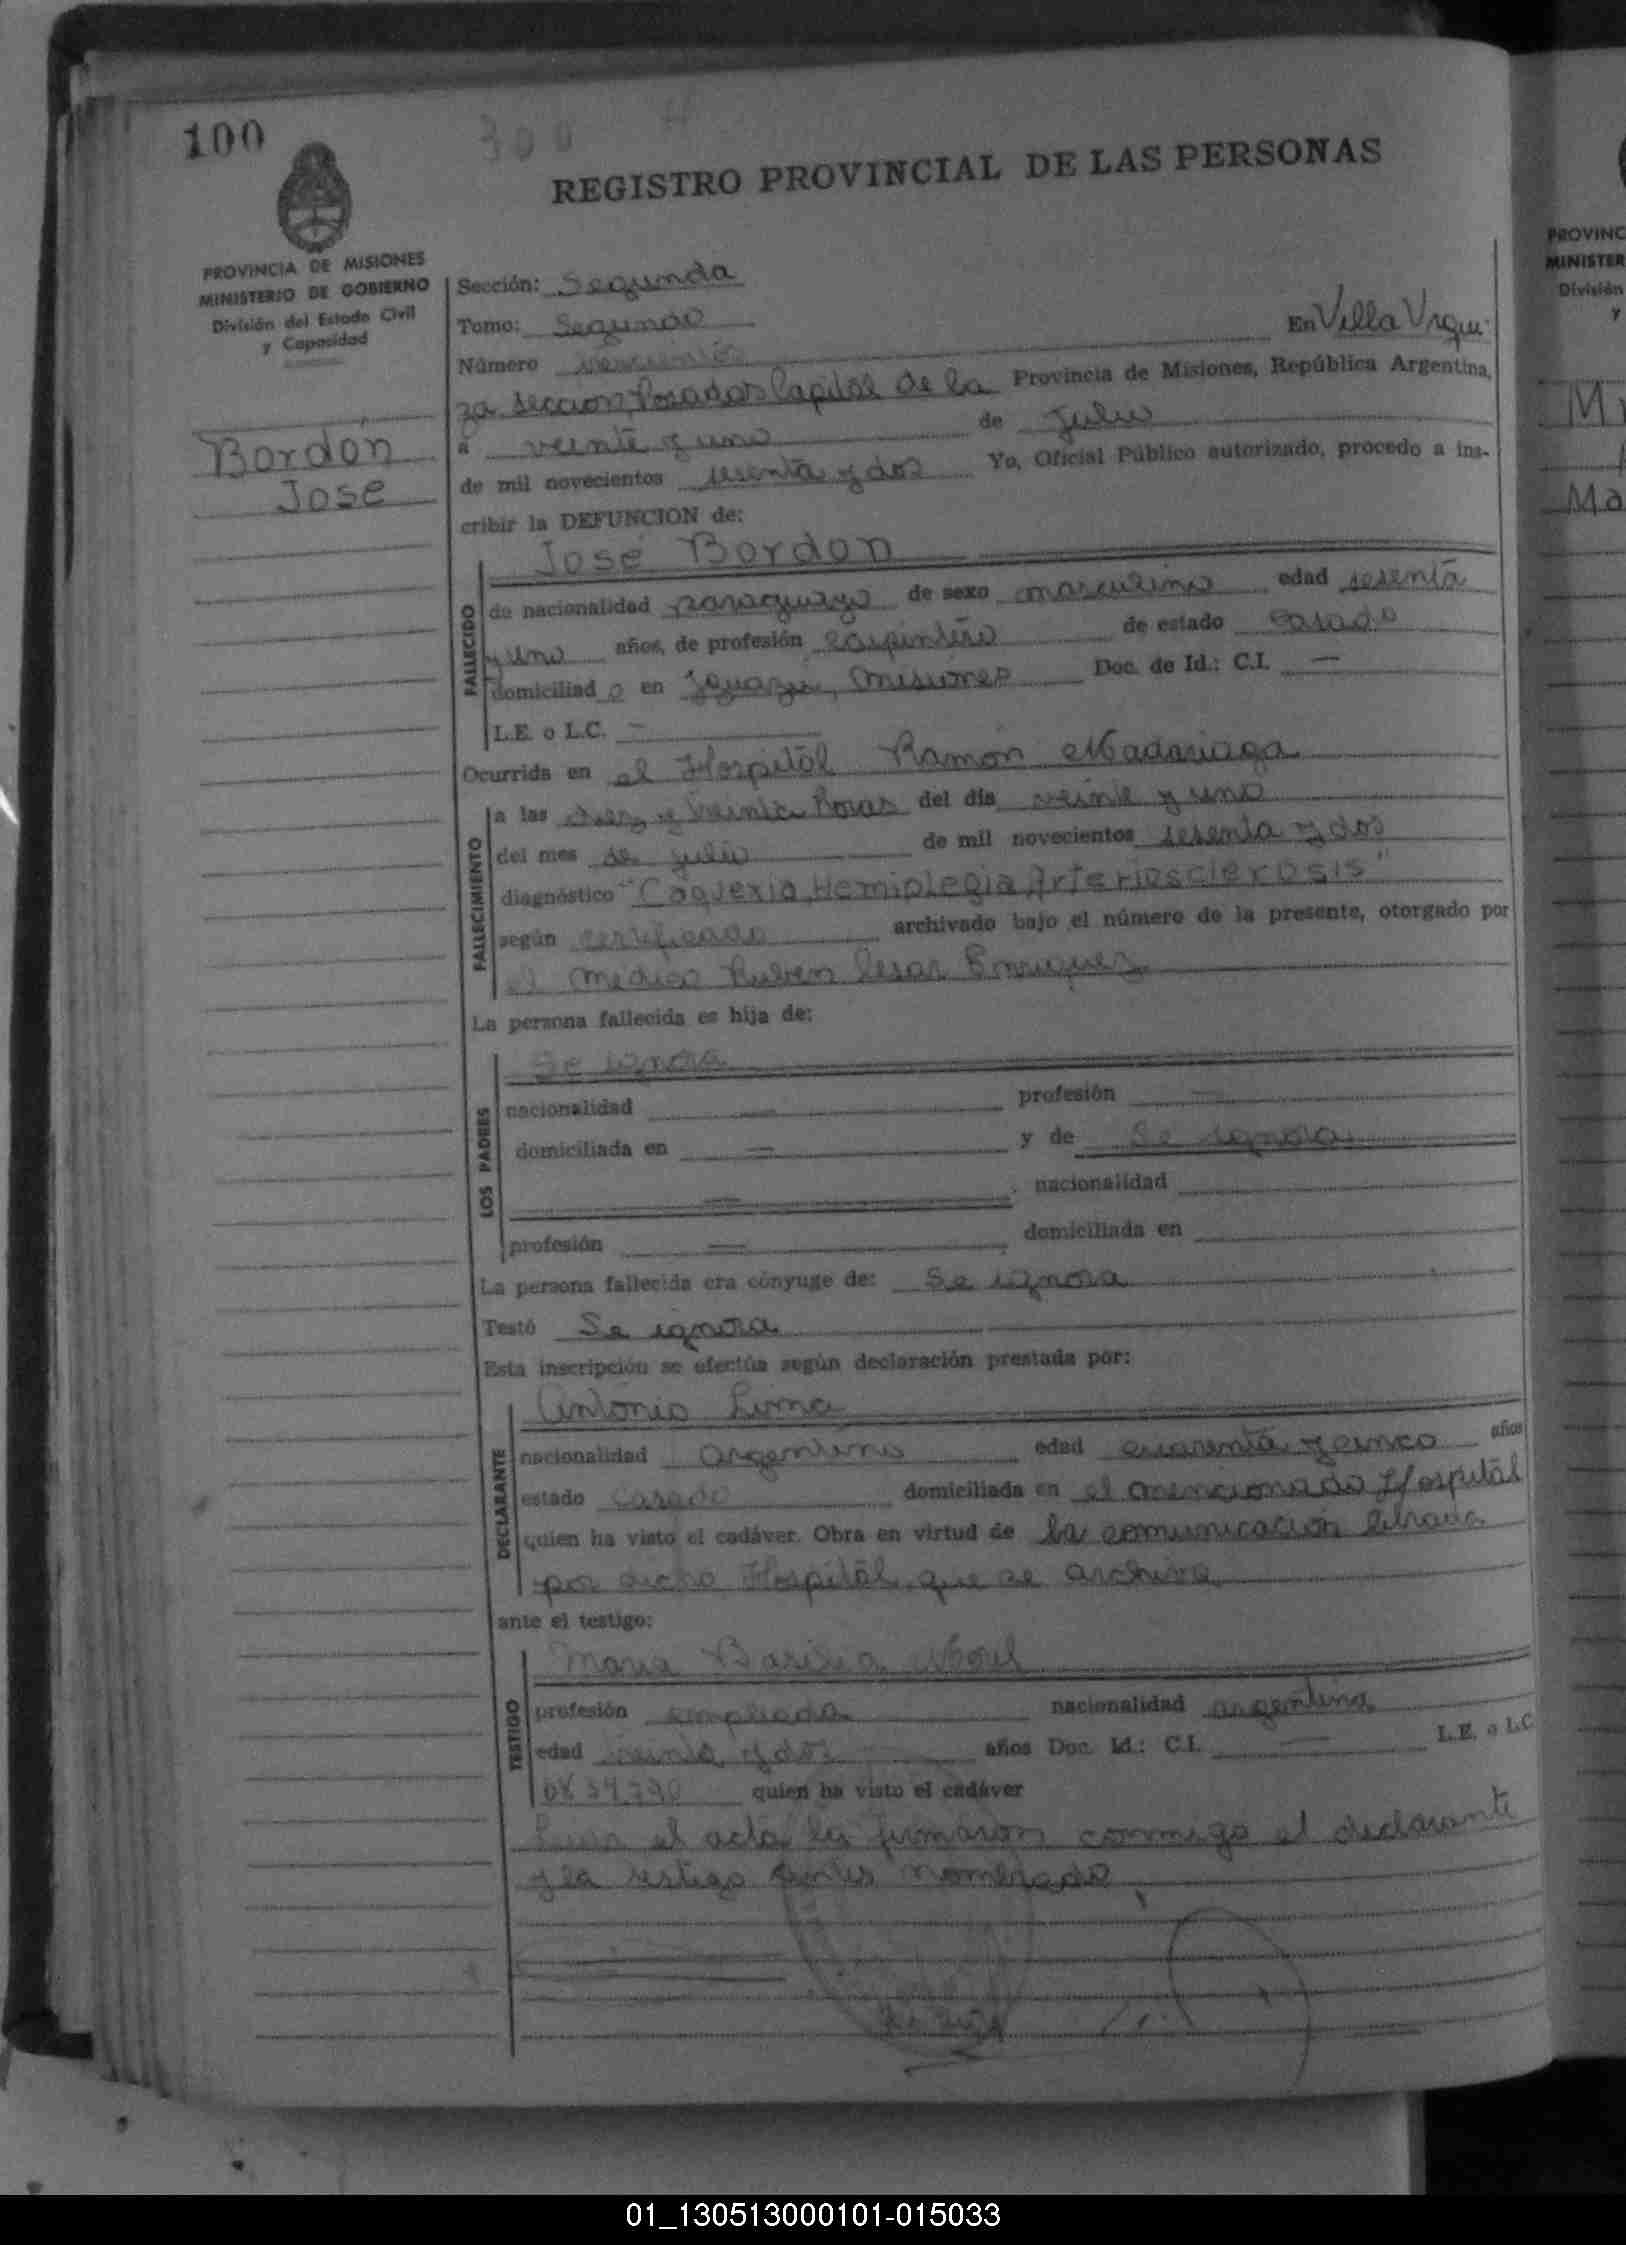 100
300
REGISTRO PROVINCIAL DE LAS PERSONAS
PROVINCIA DE MISIONES
MINISTERIO DE GOBIERNO
División del Estado Civil
y Capacidad
Bordón
José
Sección: Segunda
Tomo: Segundo
En Villa Urqui
Número trescientos
za seccion Posadas Capital de la Provincia de Misiones, República Argentina,
a veinte y uno de julio
de mil novecientos sesenta y dos Yo, Oficial Público autorizado, procedo a ins-
cribir la DEFUNCION de:
José Bordon
FALLECIDO
de nacionalidad paraguayo de sexo masculino edad sesenta
y uno años, de profesión carpintero de estado casado
domiciliad o en Iguazú, Misiones Doc. de Id.: C.I. —
L.E. o L.C. —
Ocurrida en el Hospital Ramón Madariaga
FALLECIMIENTO
a las diez y treinta horas del día veinte y uno
del mes de julio de mil novecientos sesenta y dos
diagnóstico "Caquexia, Hemiplegia, Arteriosclerosis"
según certificado archivado bajo el número de la presente, otorgado por
el medico Ruben Cesar Enriquez
La persona fallecida es hija de:
LOS PADRES
Se ignora
nacionalidad — profesión —
domiciliada en — y de Se ignora
— nacionalidad
profesión — domiciliada en
La persona fallecida era cónyuge de: Se ignora
Testó Se ignora
Esta inscripción se efectúa según declaración prestada por:
DECLARANTE
Antonio Luna
nacionalidad argentino edad cuarenta y cinco años
estado casado domiciliada en el mencionado Hospital
quien ha visto el cadáver. Obra en virtud de la comunicación librada
por dicho Hospital, que se archiva
ante el testigo:
TESTIGO
Maria Basilia
profesión empleada nacionalidad argentina
edad y dos años Doc. Id.: C.I. — L.E. o L.C.
quien ha visto el cadáver
el acta la firmaron conmigo el declarante
y la testigo antes nombrado
PROVINC
MINISTER
División
y
Ma
01_130513000101-015033